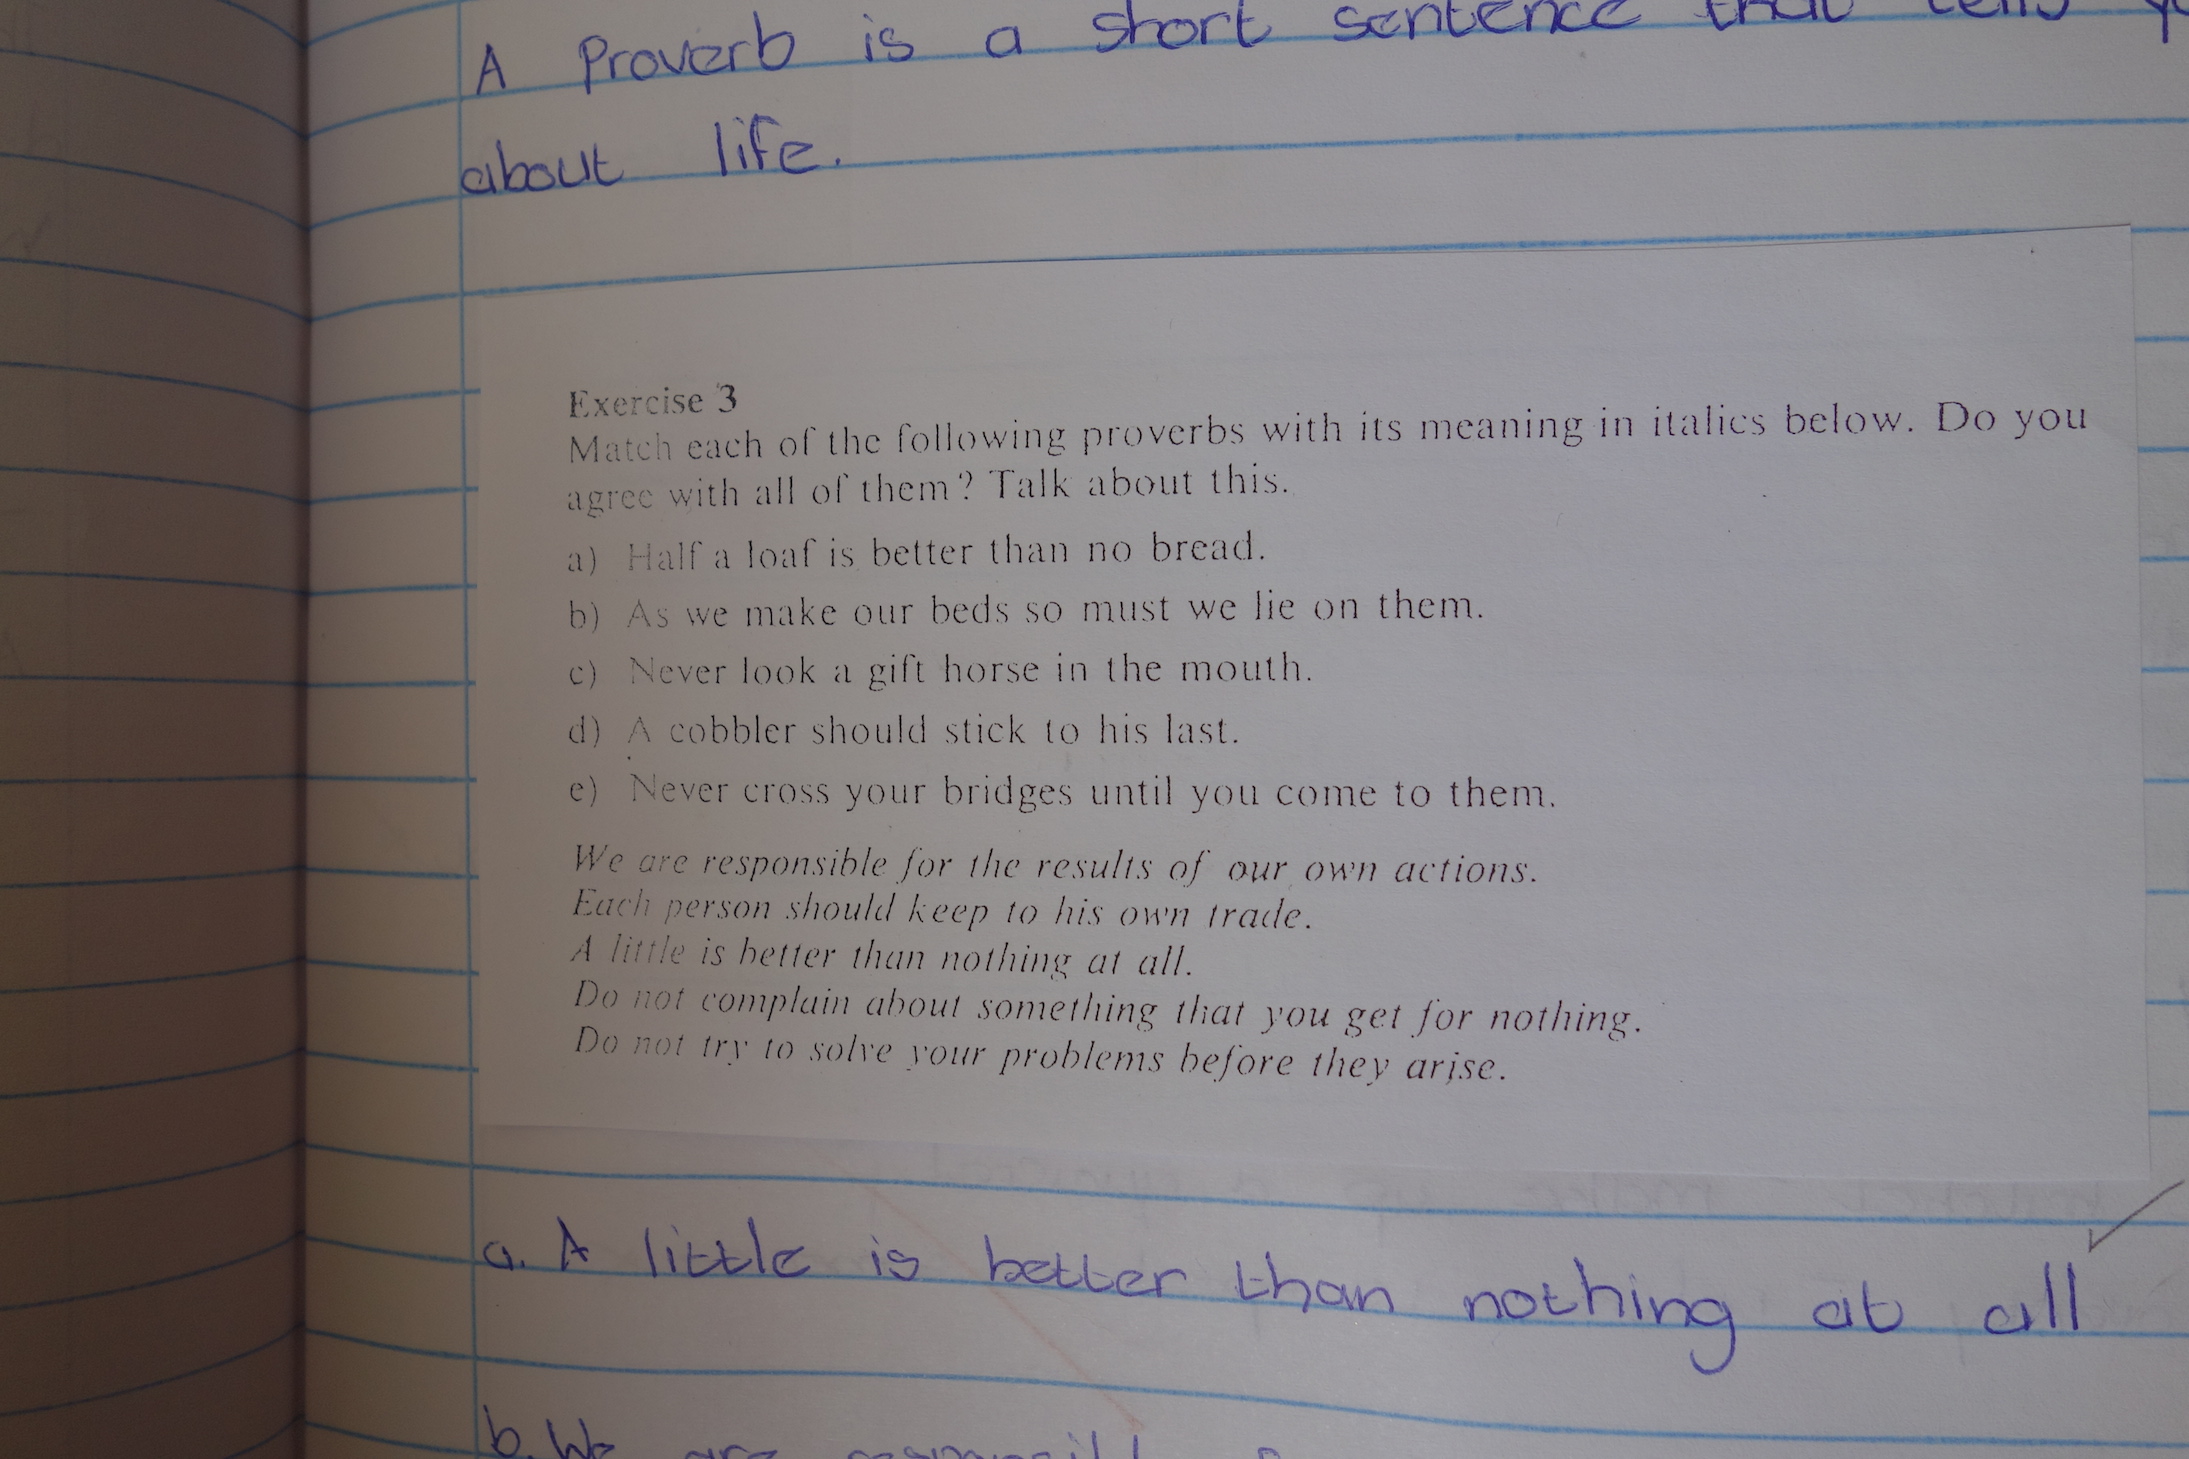 A Proverb is a short sentence that tells
about life.
Exercise 3
Match each of the following proverbs with its meaning in italics below. Do you
agree with all of them? Talk about this.
a) Half a loaf is better than no bread.
b) As we make our beds so must we lie on them.
c) Never look a gift horse in the mouth.
d) A cobbler should stick to his last.
e) Never cross your bridges until you come to them.
We are responsible for the results of our own actions.
Each person should keep to his own trade.
A little is better than nothing at all.
Do not complain about something that you get for nothing.
Do not try to solve your problems before they arise.
a. A little is better than nothing at all
b. We are